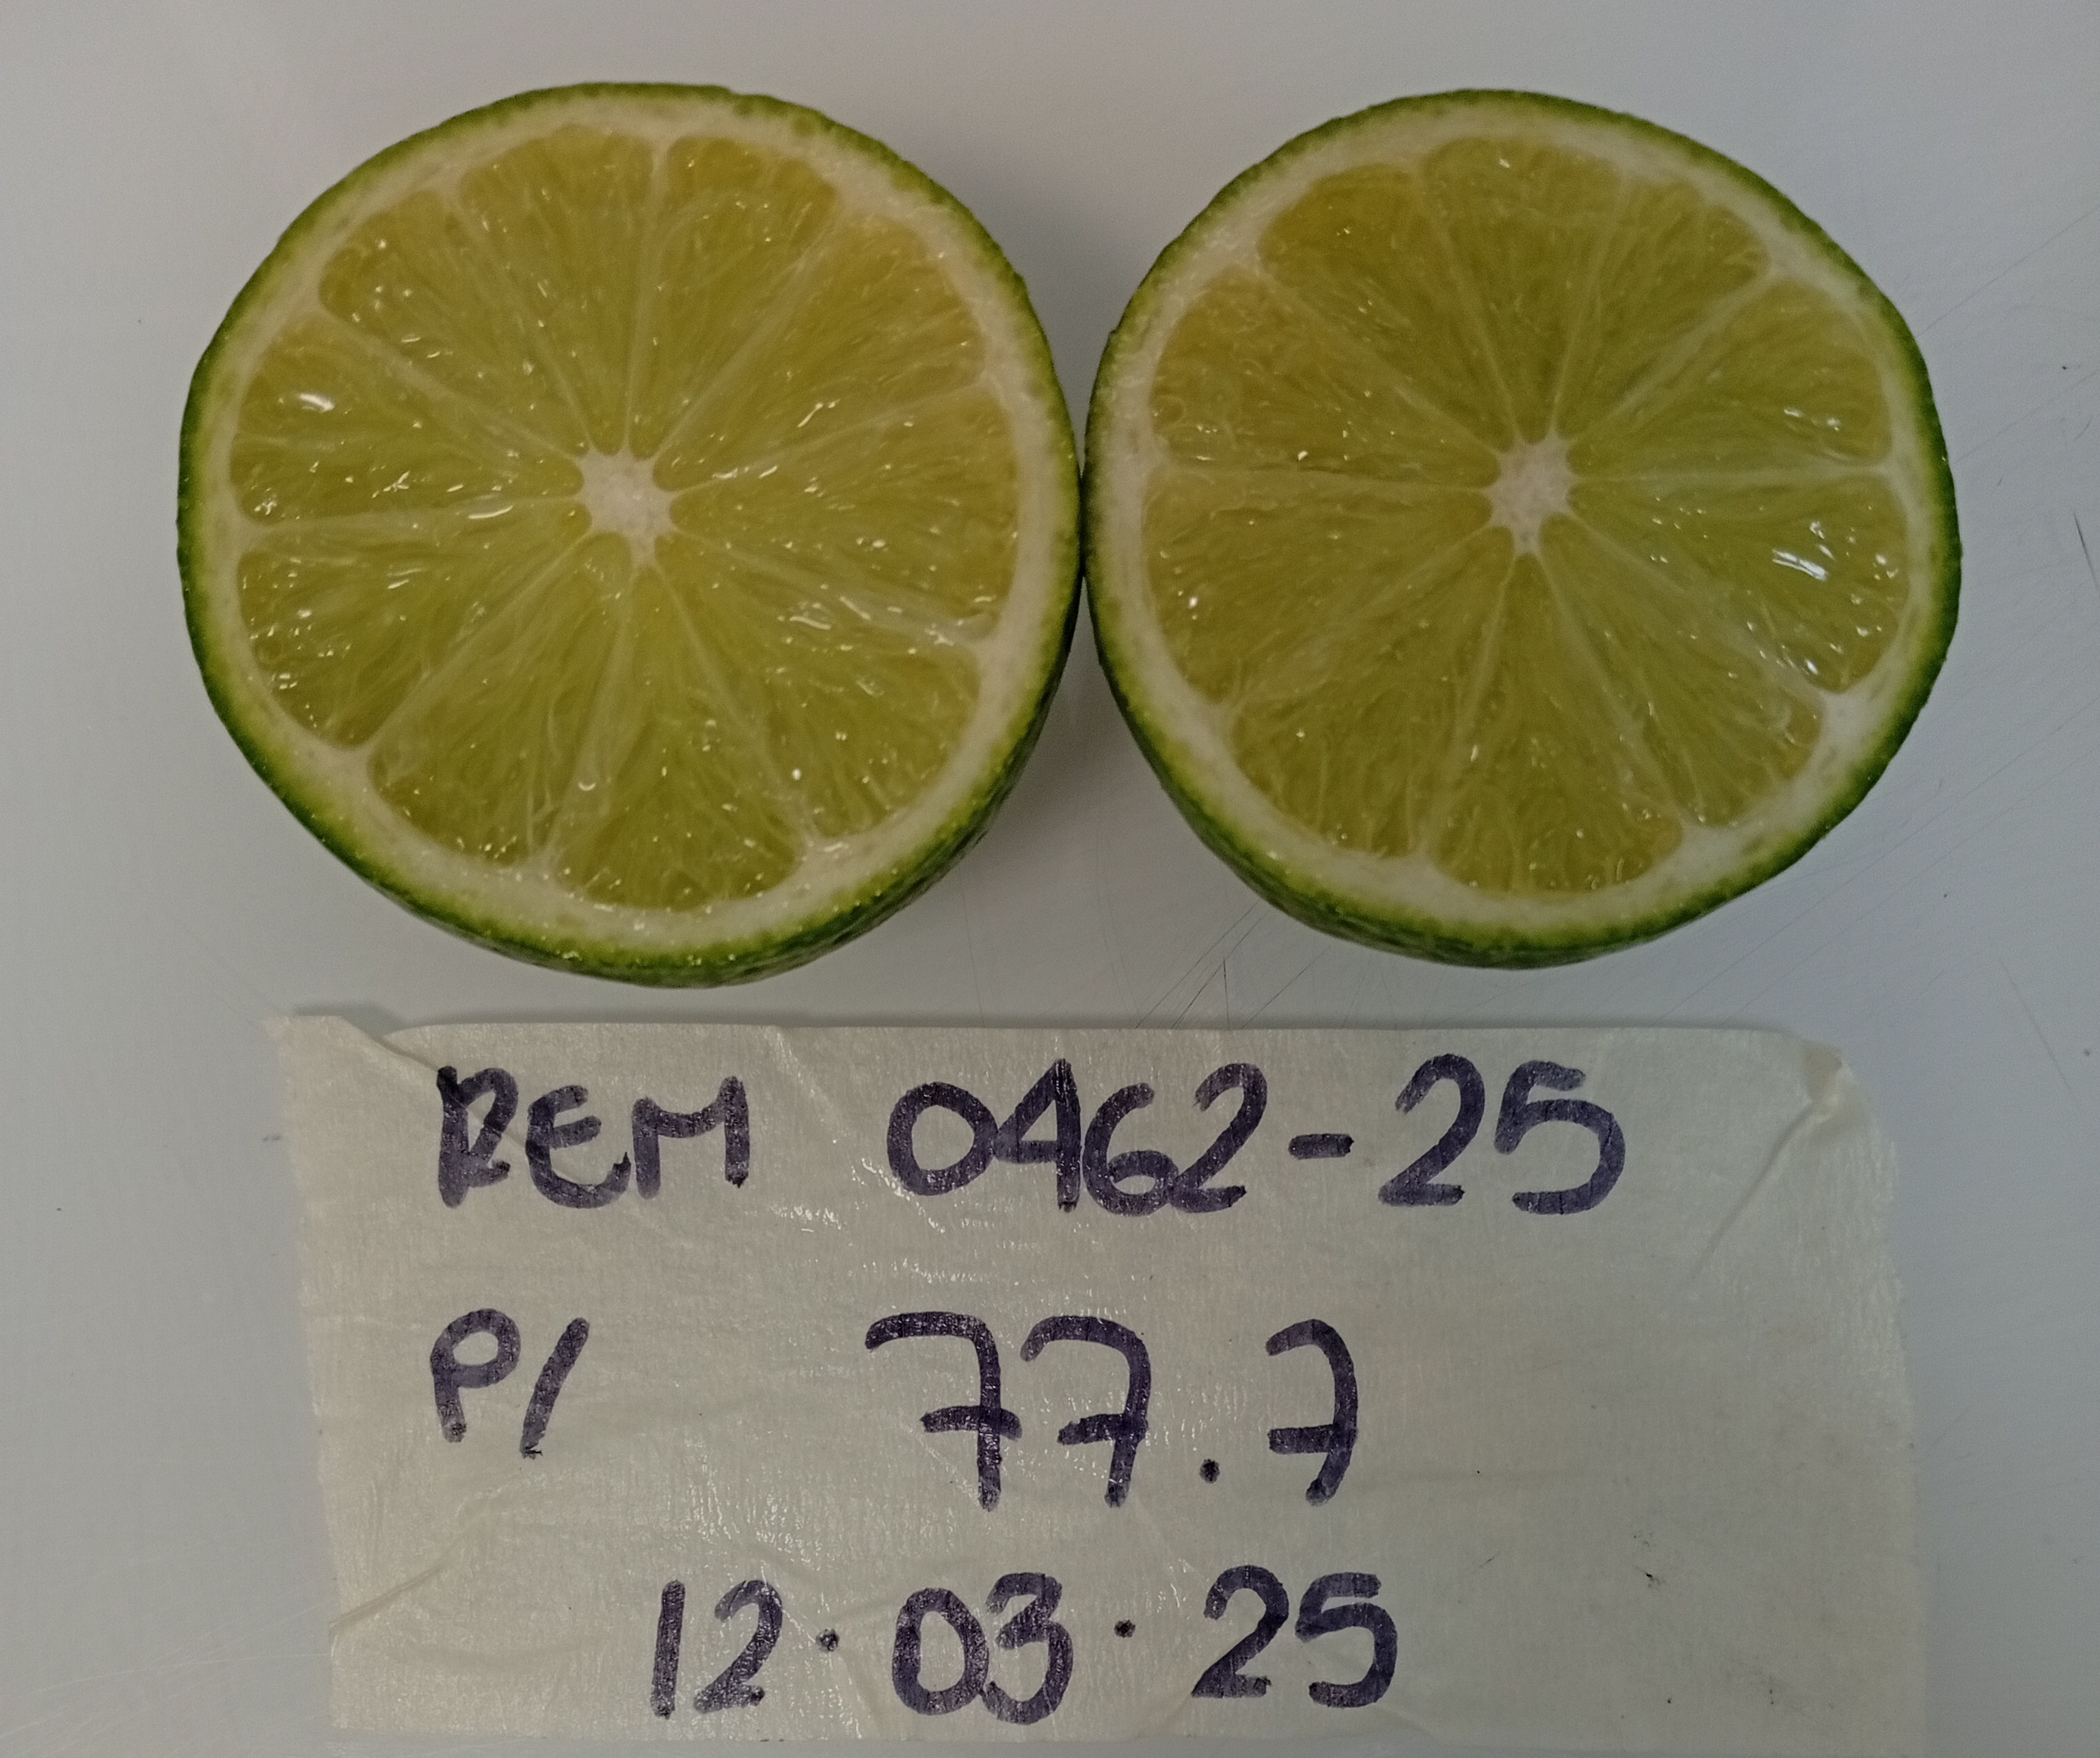 REM 0462-25
P/ 77.7
12.03.25